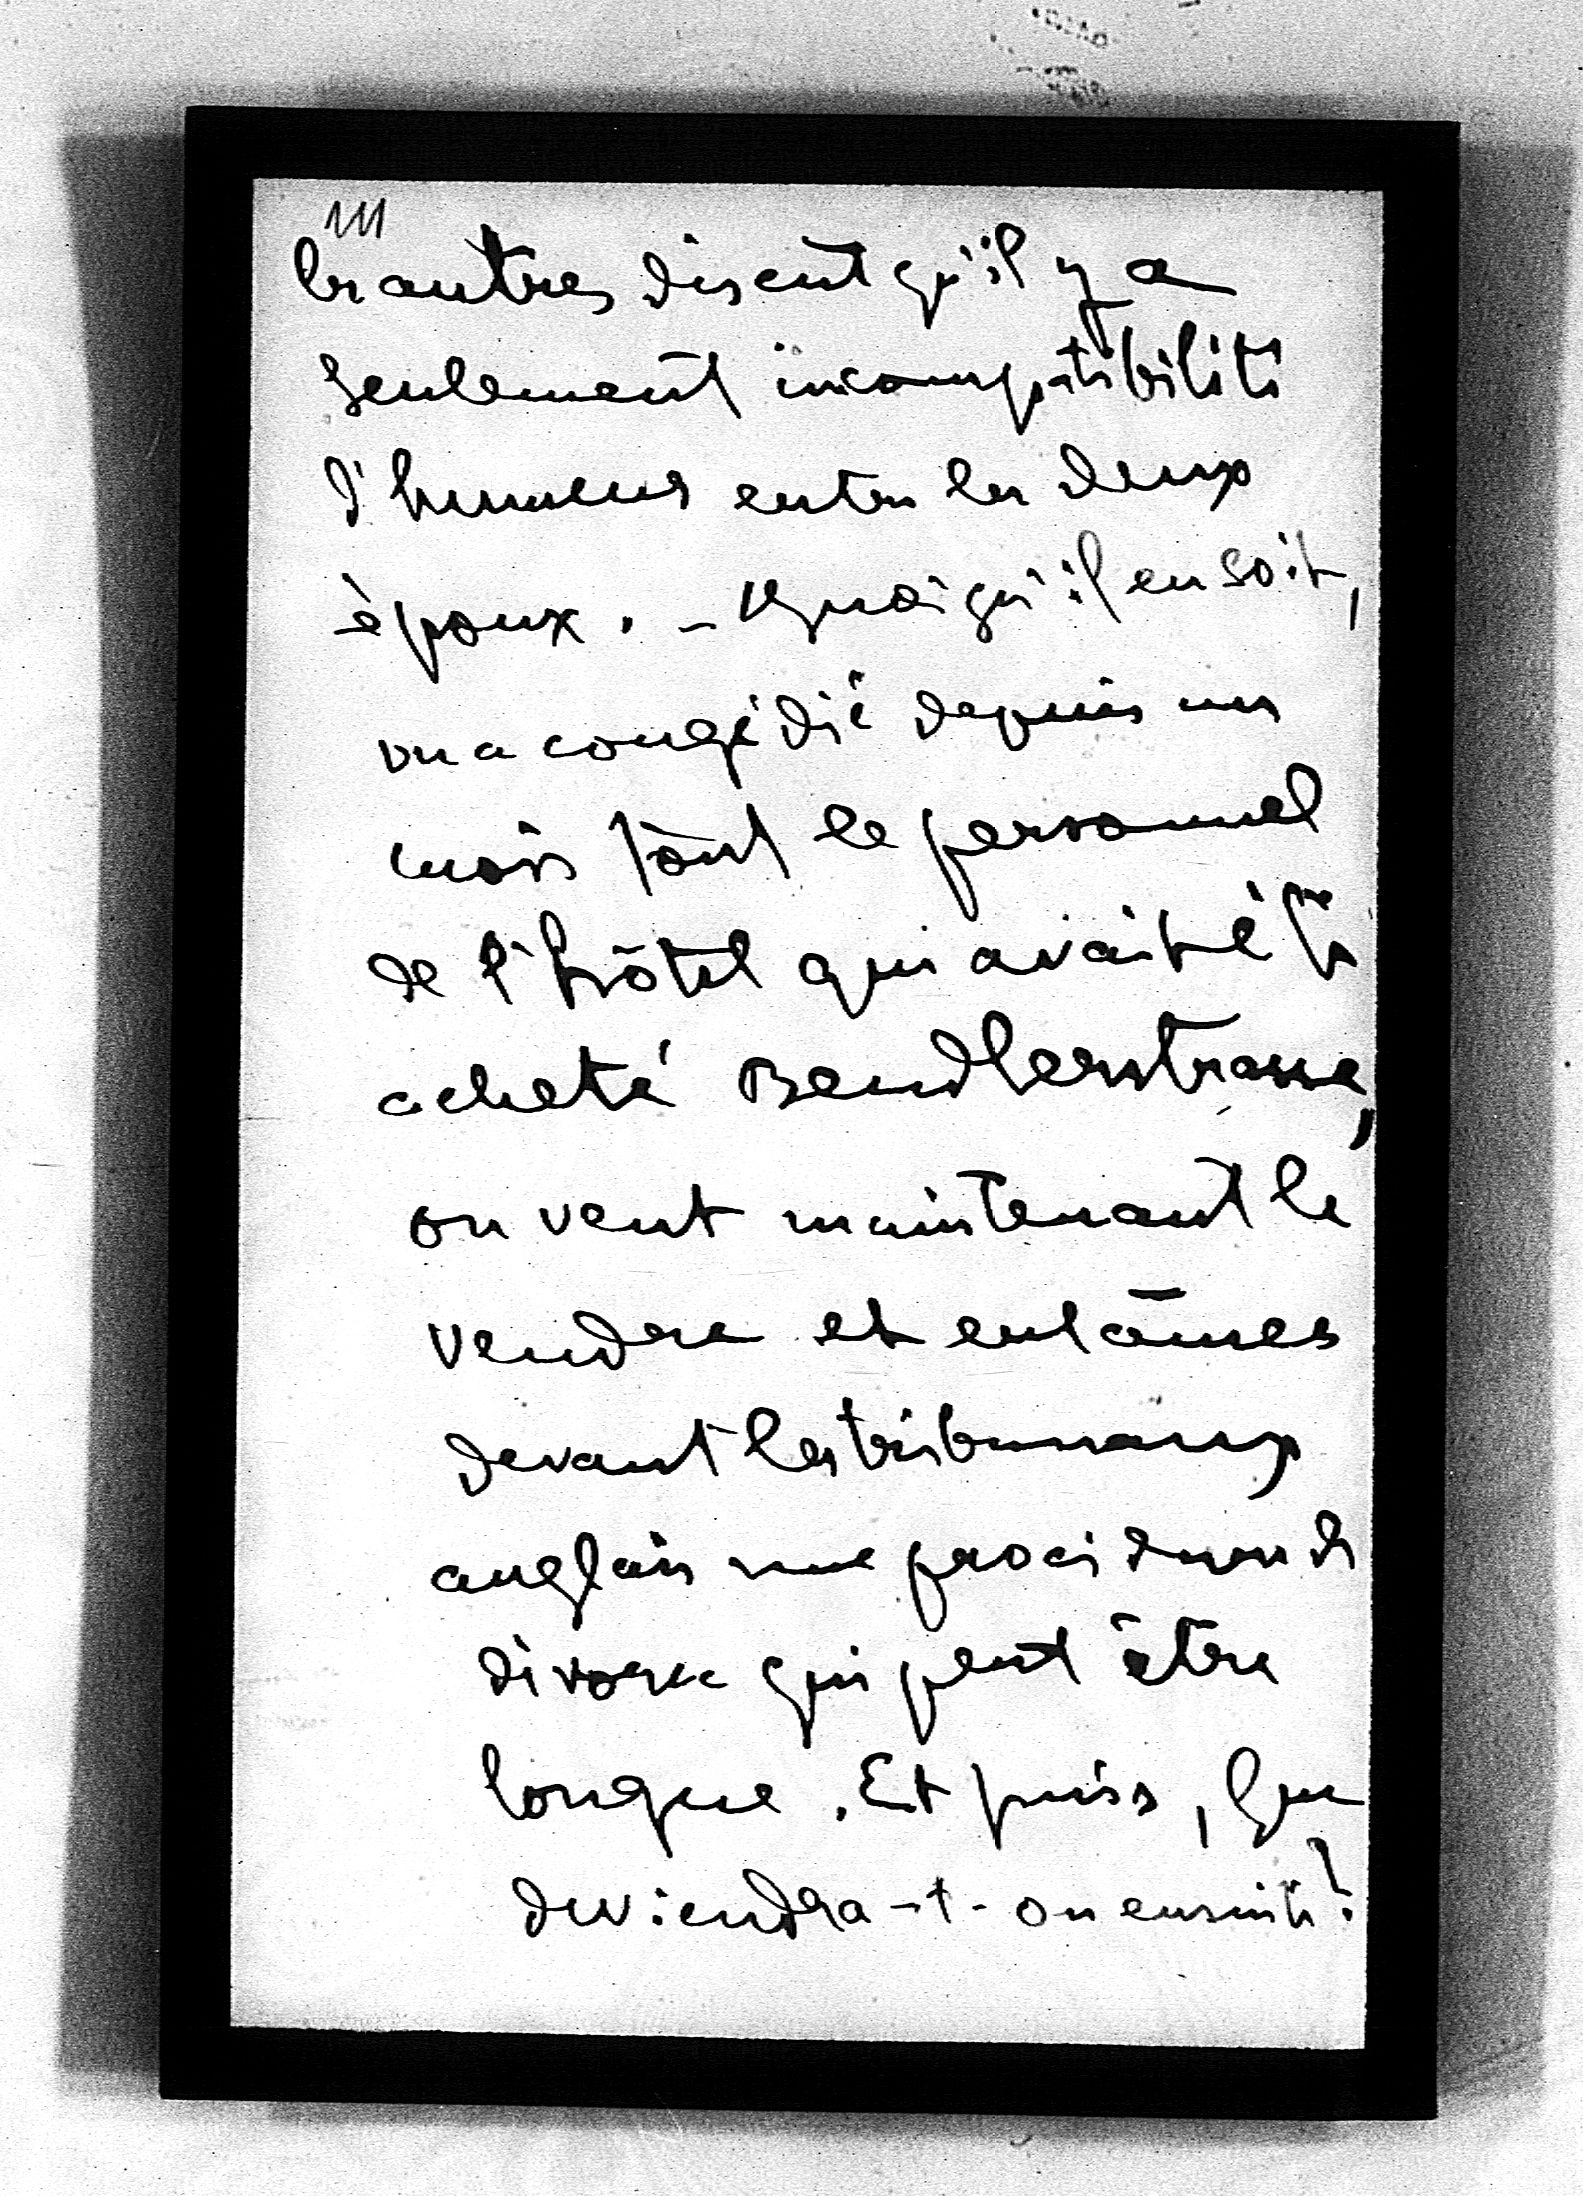 111
les autres disent qu'il y a
seulement incompatibilité
d'humeur entre les deux
époux. – Quoi qu'il en soit,
on a congédié depuis un
mois tout le personnel
de l'hôtel qui avait été
acheté Bendlerstrasse,
on veut maintenant le
vendre et entamer
devant les tribunaux
anglais une procédure de
divorce qui peut être
longue. Et puis, que
deviendra-t-on ensuite?